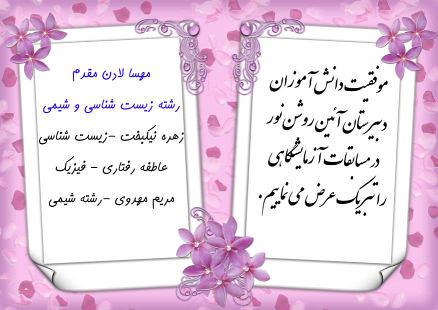 موفقیت دانش آموزان
دبیرستان آئین روشن نور
در مسابقات آزمایشگاهی
را تبریک عرض می نماییم.
مهسا لادن مقدم
رشته زیست شناسی و شیمی
زهره نیکبخت -زیست شناسی
عاطفه رفتاری - فیزیک
مریم مهدوی -رشته شیمی